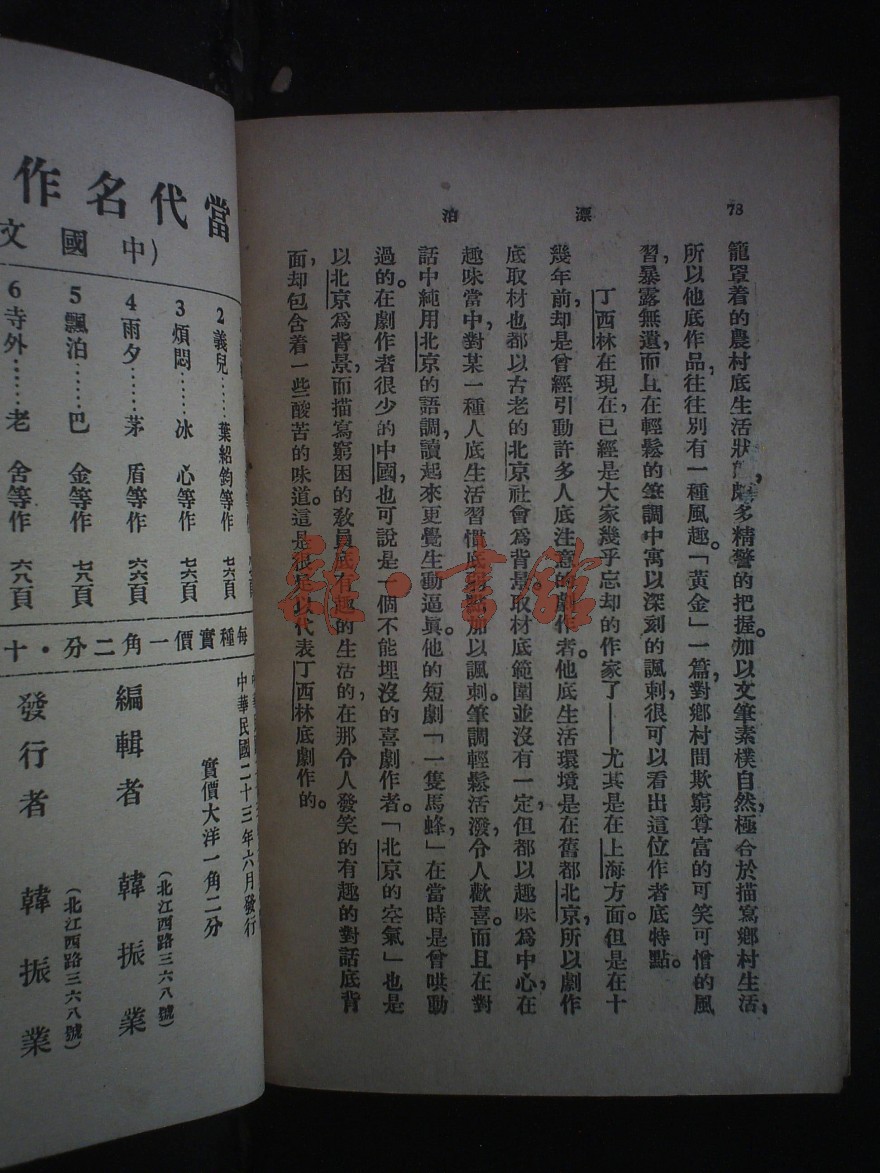 78
漂泊
籠罩着的農村底生活狀 頗多精警的把握。加以文筆素樸自然，極合於描寫鄉村生活，
所以他底作品，往往別有一種風趣。「黃金」一篇，對鄉村間欺窮尊富的可笑可憎的風
習，暴露無遺，而且在輕鬆的筆調中寓以深刻的諷刺，很可以看出這位作者底特點。
丁西林在現在，已經是大家幾乎忘却的作家了——尤其是在上海方面。但是在十
幾年前，却是曾經引動許多人底注意的劇作者。他底生活環境是在舊都北京，所以劇作
底取材也都以古老的北京社會爲背景。取材底範圍並沒有一定，但都以趣味爲中心，在
趣味當中，對某一種人底生活習慣底 加以諷刺。筆調輕鬆活潑，令人歡喜。而且在對
話中純用北京的語調，讀起來更覺生動逼眞。他的短劇「一隻馬蜂」，在當時是曾哄動
過的。在劇作者很少的中國，也可說是一個不能埋沒的喜劇作者。「北京的空氣」也是
以北京爲背景，而描寫窮困的教員底有趣的生活的，在那令人發笑的有趣的對話底背
面，却包含着一些酸苦的味道。這是很足以代表丁西林底劇作的。
當代名作
(中國文
2 義兒……葉紹鈞等作 七六頁
3 煩悶……冰心等作 七六頁
4 雨夕……茅盾等作 六六頁
5 飄泊……巴金等作 七八頁
6 寺外……老舍等作 六八頁
每種實價一角二分·十
中華民國二十三年六月發行
實價大洋一角二分
(北江西路三六八號)
編輯者 韓振業
(北江西路三六八號)
發行者 韓振業
書館